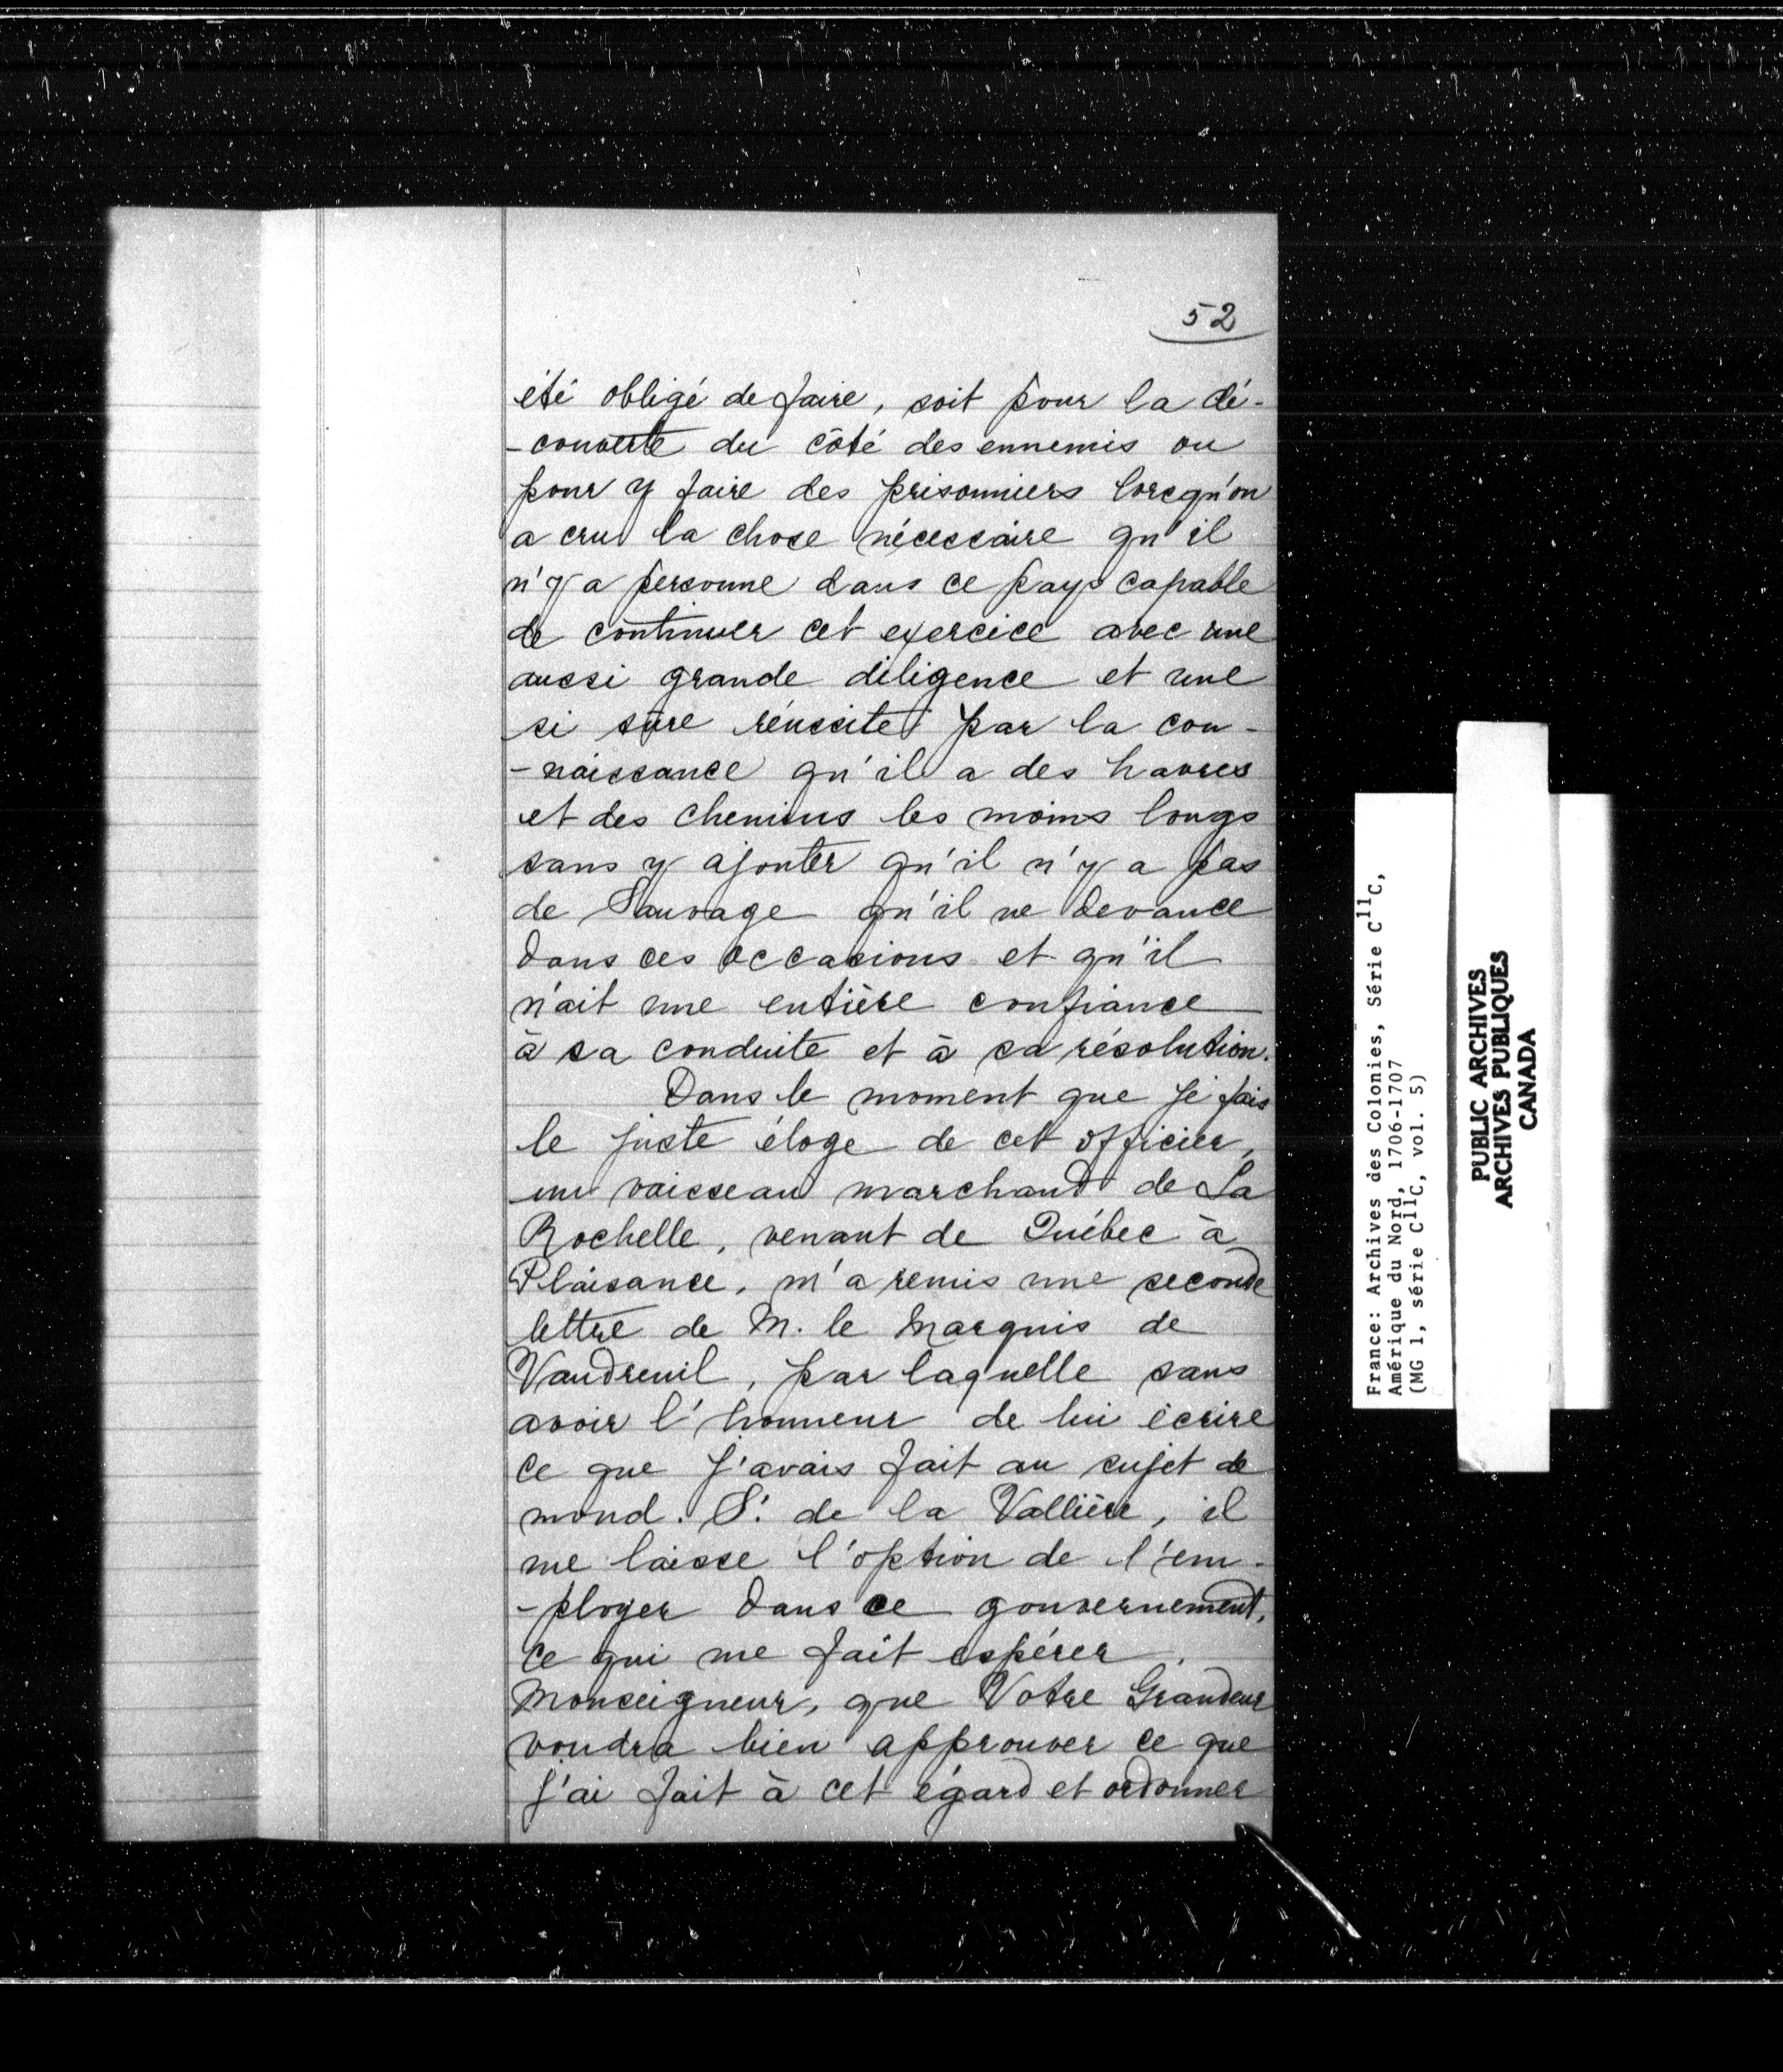 52
été obligé de faire, soit pour la dé-
-couverte du côté des ennemis ou
pour y faire des prisonniers lorsqu'on
a cru la chose nécessaire qu'il
n'y a personne dans ce pays capable
de continuer cet exercice avec une
aussi grande diligence et une
si sûre réussite par la con-
-naissance qu'il a des havres
et des chemins les moins longs
sans y ajouter qu'il n'y a pas
de Sauvage qu'il ne devance
dans ces occasions et qu'il
n'ait une entière confiance
à sa conduite et à sa résolution.
Dans le moment que je fais
le juste éloge de cet officier,
un vaisseau marchand de La
Rochelle, venant de Québec à
Plaisance, m'a remis une seconde
lettre de M. le Marquis de
Vaudreuil, par laquelle sans
avoir l'honneur de lui écrire
ce que j'avais fait au sujet de
mond. S. de la Vallière, il
me laisse l'option de l'em-
-ployer dans ce gouvernement,
ce qui me fait espérer,
Monseigneur, que Votre Grandeur
voudra bien approuver ce que
j'ai fait à cet égard et ordonner
France: Archives des Colonies, Série C11C,
Amérique du Nord, 1706-1707
(MG 1, série C11C, vol. 5)
PUBLIC ARCHIVES
ARCHIVES PUBLIQUES
CANADA